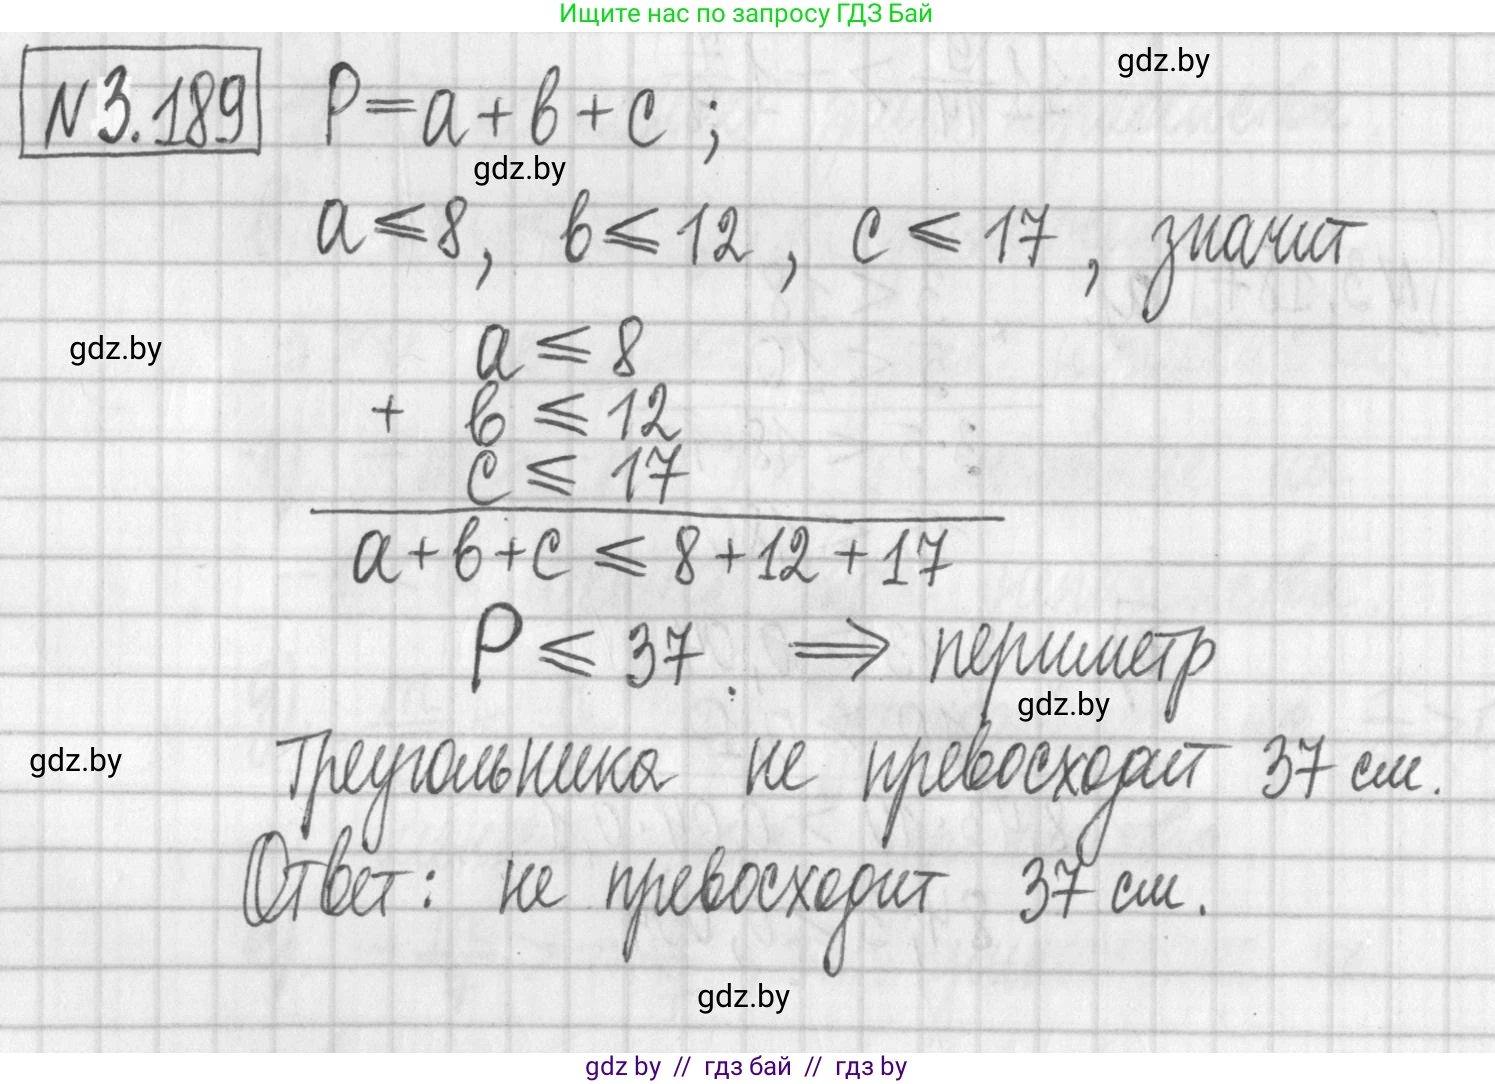 Ищите нас по запросу ГДЗ Бай
N 3.189 P = a + b + c ;
gdz.by
gdz.by
a ⩽ 8, b ⩽ 12, c ⩽ 17, значит
gdz.by
a ⩽ 8
+ b ⩽ 12
c ⩽ 17
a + b + c ⩽ 8 + 12 + 17
P ⩽ 37. ⇒ периметр
gdz.by
треугольника не превосходит 37 см.
gdz.by
Ответ: не превосходит 37 см.
gdz.by
gdz by // гдз бай // гдз by